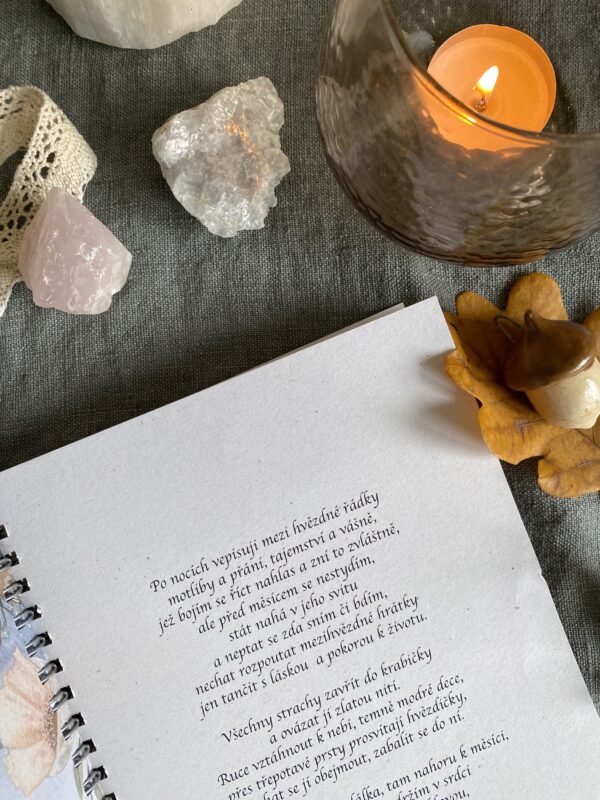 Po nocích vepisuji mezi hvězdné řádky
motliby a přání, tajemství a vášně,
jež bojím se říct nahlas a zní to zvláštně,
ale před měsícem se nestydím,
stát nahá v jeho svitu
a neptat se zda sním či bdím,
nechat rozpoutat mezihvězdné hrátky
jen tančit s láskou a pokorou k životu.
Všechny strachy zavřít do krabičky
a ovázat jí zlatou nití.
Ruce vztáhnout k nebi, temně modré dece,
přes třepotavé prsty prosvítají hvězdičky,
se jí obejmout, zabalit se do ní.
tam nahoru k měsíci,
v srdci